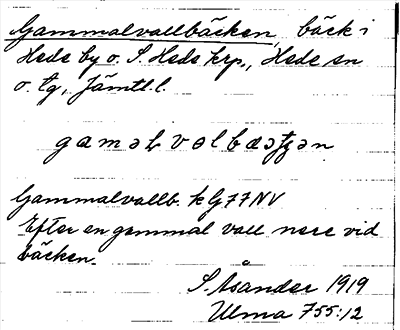 Gammalvallbäcken, bäck i
Hede by o. S. Heds krp., Hede sn
o. tg, Jämtl.l.
gaməLvəlbæəʈʂən
Gammalvallb. k G77NV
Efter en gammal vall nere vid
bäcken.
S. Åsander 1919
Ulma 755:12